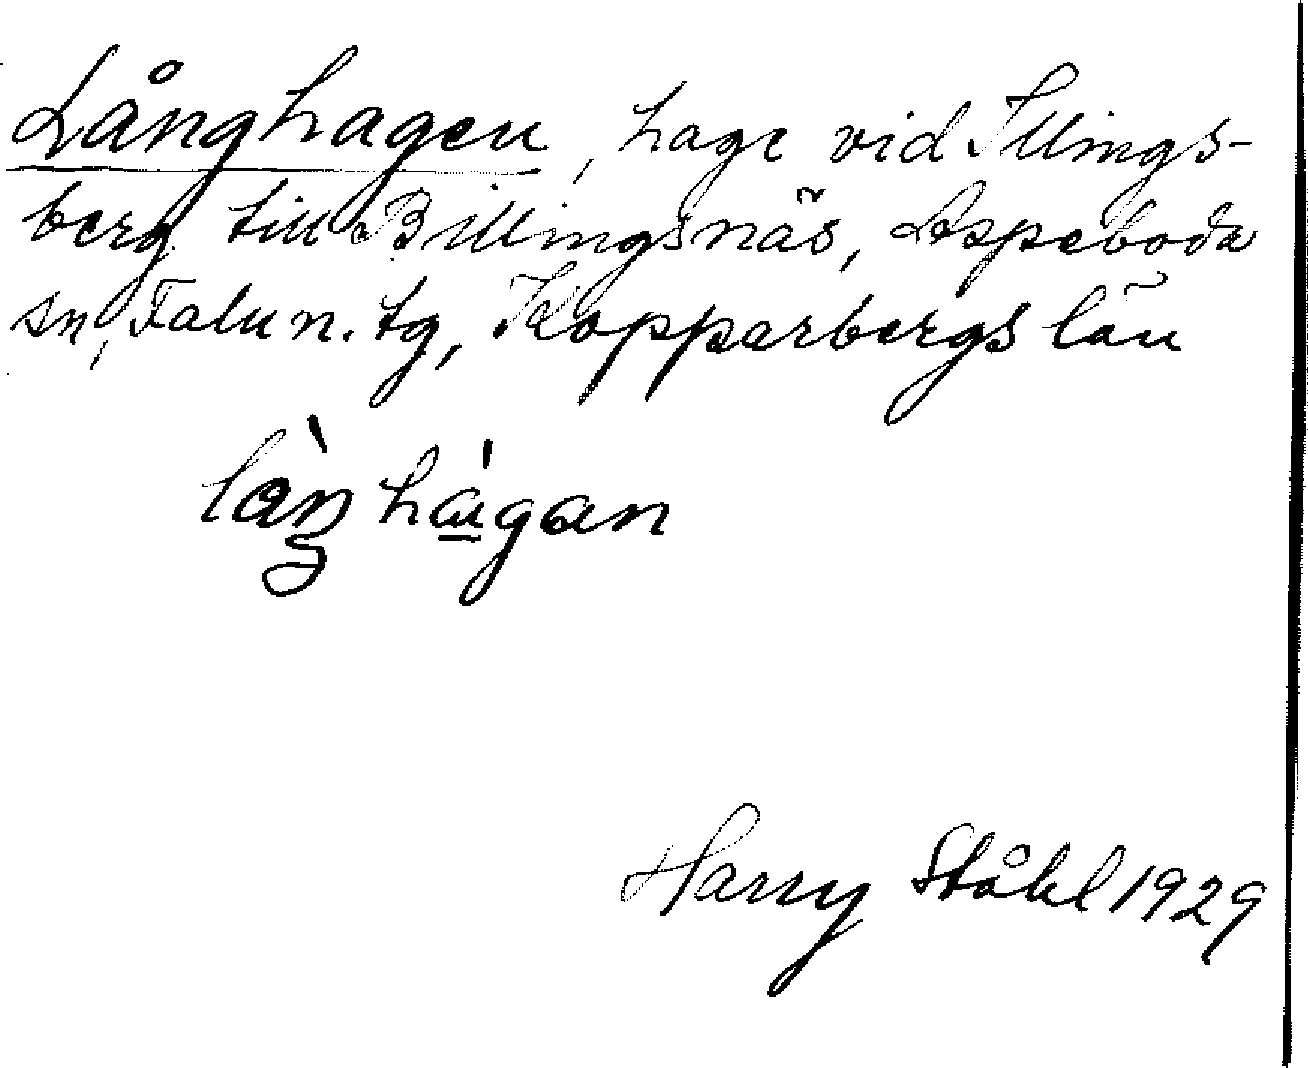 Långhagen, hage vid Illings-
berg till Billingsnäs, Aspeboda
sn, Falu n. tg, Kopparbergs län
làŋhágan
Harry Ståhl 1929